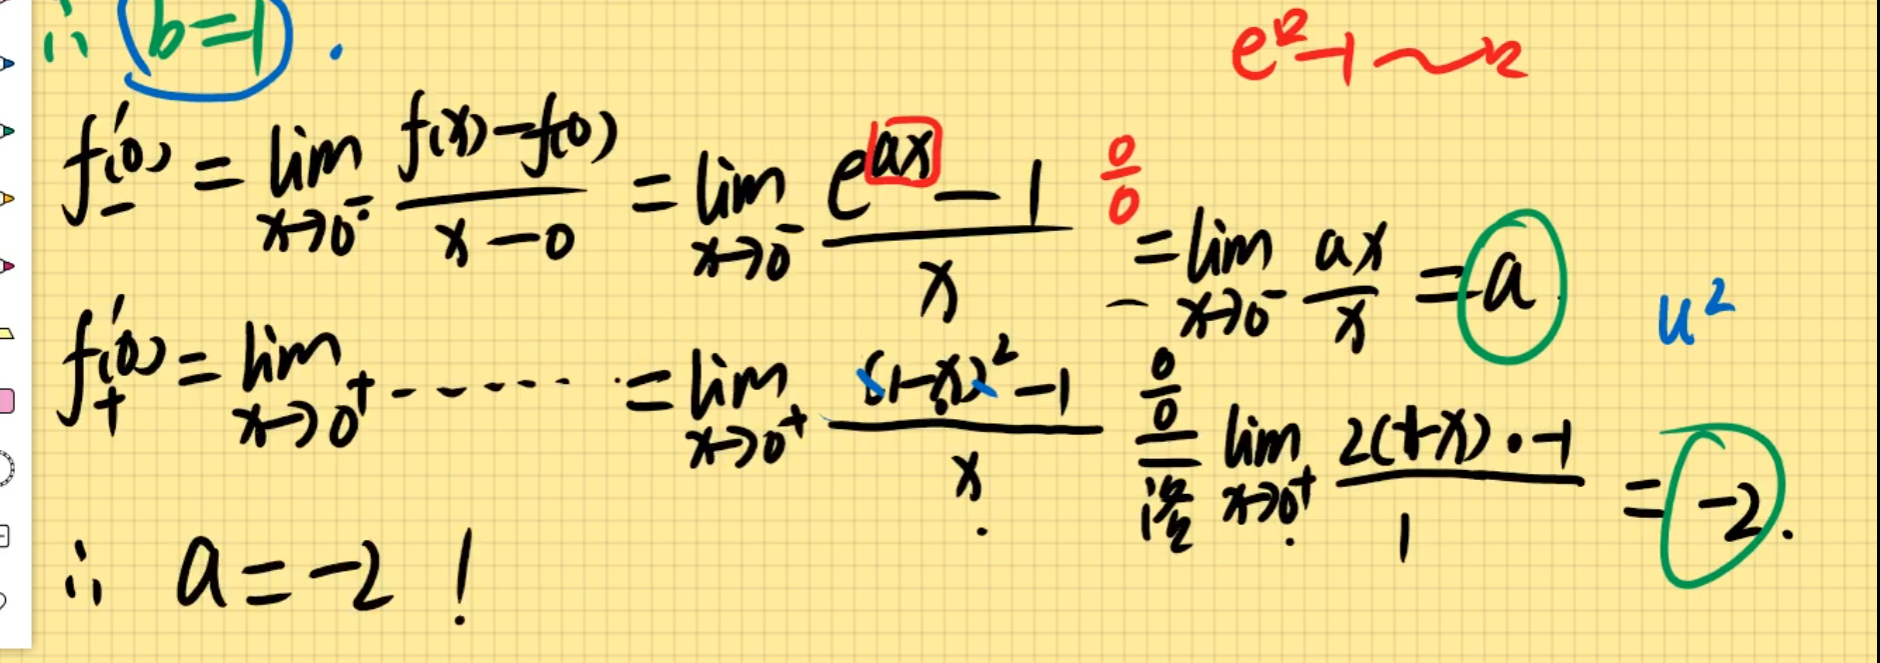 ∴ b=1.
e^狗-1~狗
f'₋(0) = lim x→0⁻ f(x)-f(0) / x-0 = lim x→0⁻ e^ax - 1 / x 0/0 = lim x→0⁻ ax / x = a
u²
f'₊(0) = lim x→0⁺ ------ = lim x→0⁺ (1-x)²-1 / x 0/0 = 洛 lim x→0⁺ 2(1-x)·-1 / 1 = -2.
∴ a=-2!